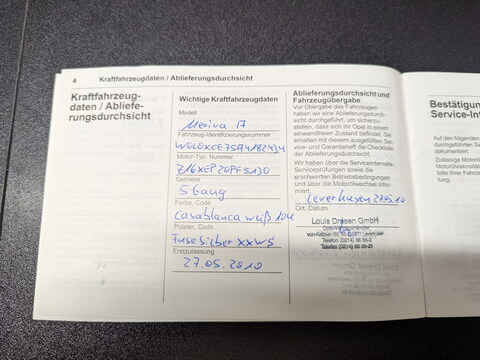 4 Kraftfahrzeugdaten / Ablieferungsdurchsicht
Kraftfahrzeug-
daten / Abliefe-
rungsdurchsicht
Wichtige Kraftfahrzeugdaten
Modell
Meriva A
Fahrzeug-Identifizierungsnummer
Motor-Typ, Nummer
Getriebe
5 Gang
Farbe, Code
Casablanca weiß 10U
Polster, Code
Erstzulassung
27.05.2010
Ablieferungsdurchsicht und
Fahrzeugübergabe
Vor Übergabe des Fahrzeuges
haben wir eine Ablieferungs-
durchsicht durchgeführt, um sicherzu-
stellen, dass sich Ihr Opel in einem
einwandfreien Zustand befindet. Sie
erhalten mit diesem ausgefüllten Ser-
vice- und Garantieheft die Checkliste
der Ablieferungsdurchsicht.
Wir haben Sie über Serviceintervalle,
Serviceprüfungen sowie die
erschwerten Betriebsbedingungen
und über die Motorölwechsel infor-
miert.
Leverkusen 27.5.10
Ort, Datum
Louis Dresen GmbH
Telefon (0214) 86 88-0
Bestätigun
Service-In
Auf den folgenden
durchgeführten
dokumentiert.
Zulässige Motorö
Motorölwechsel
bitte Ihrer Fahrz